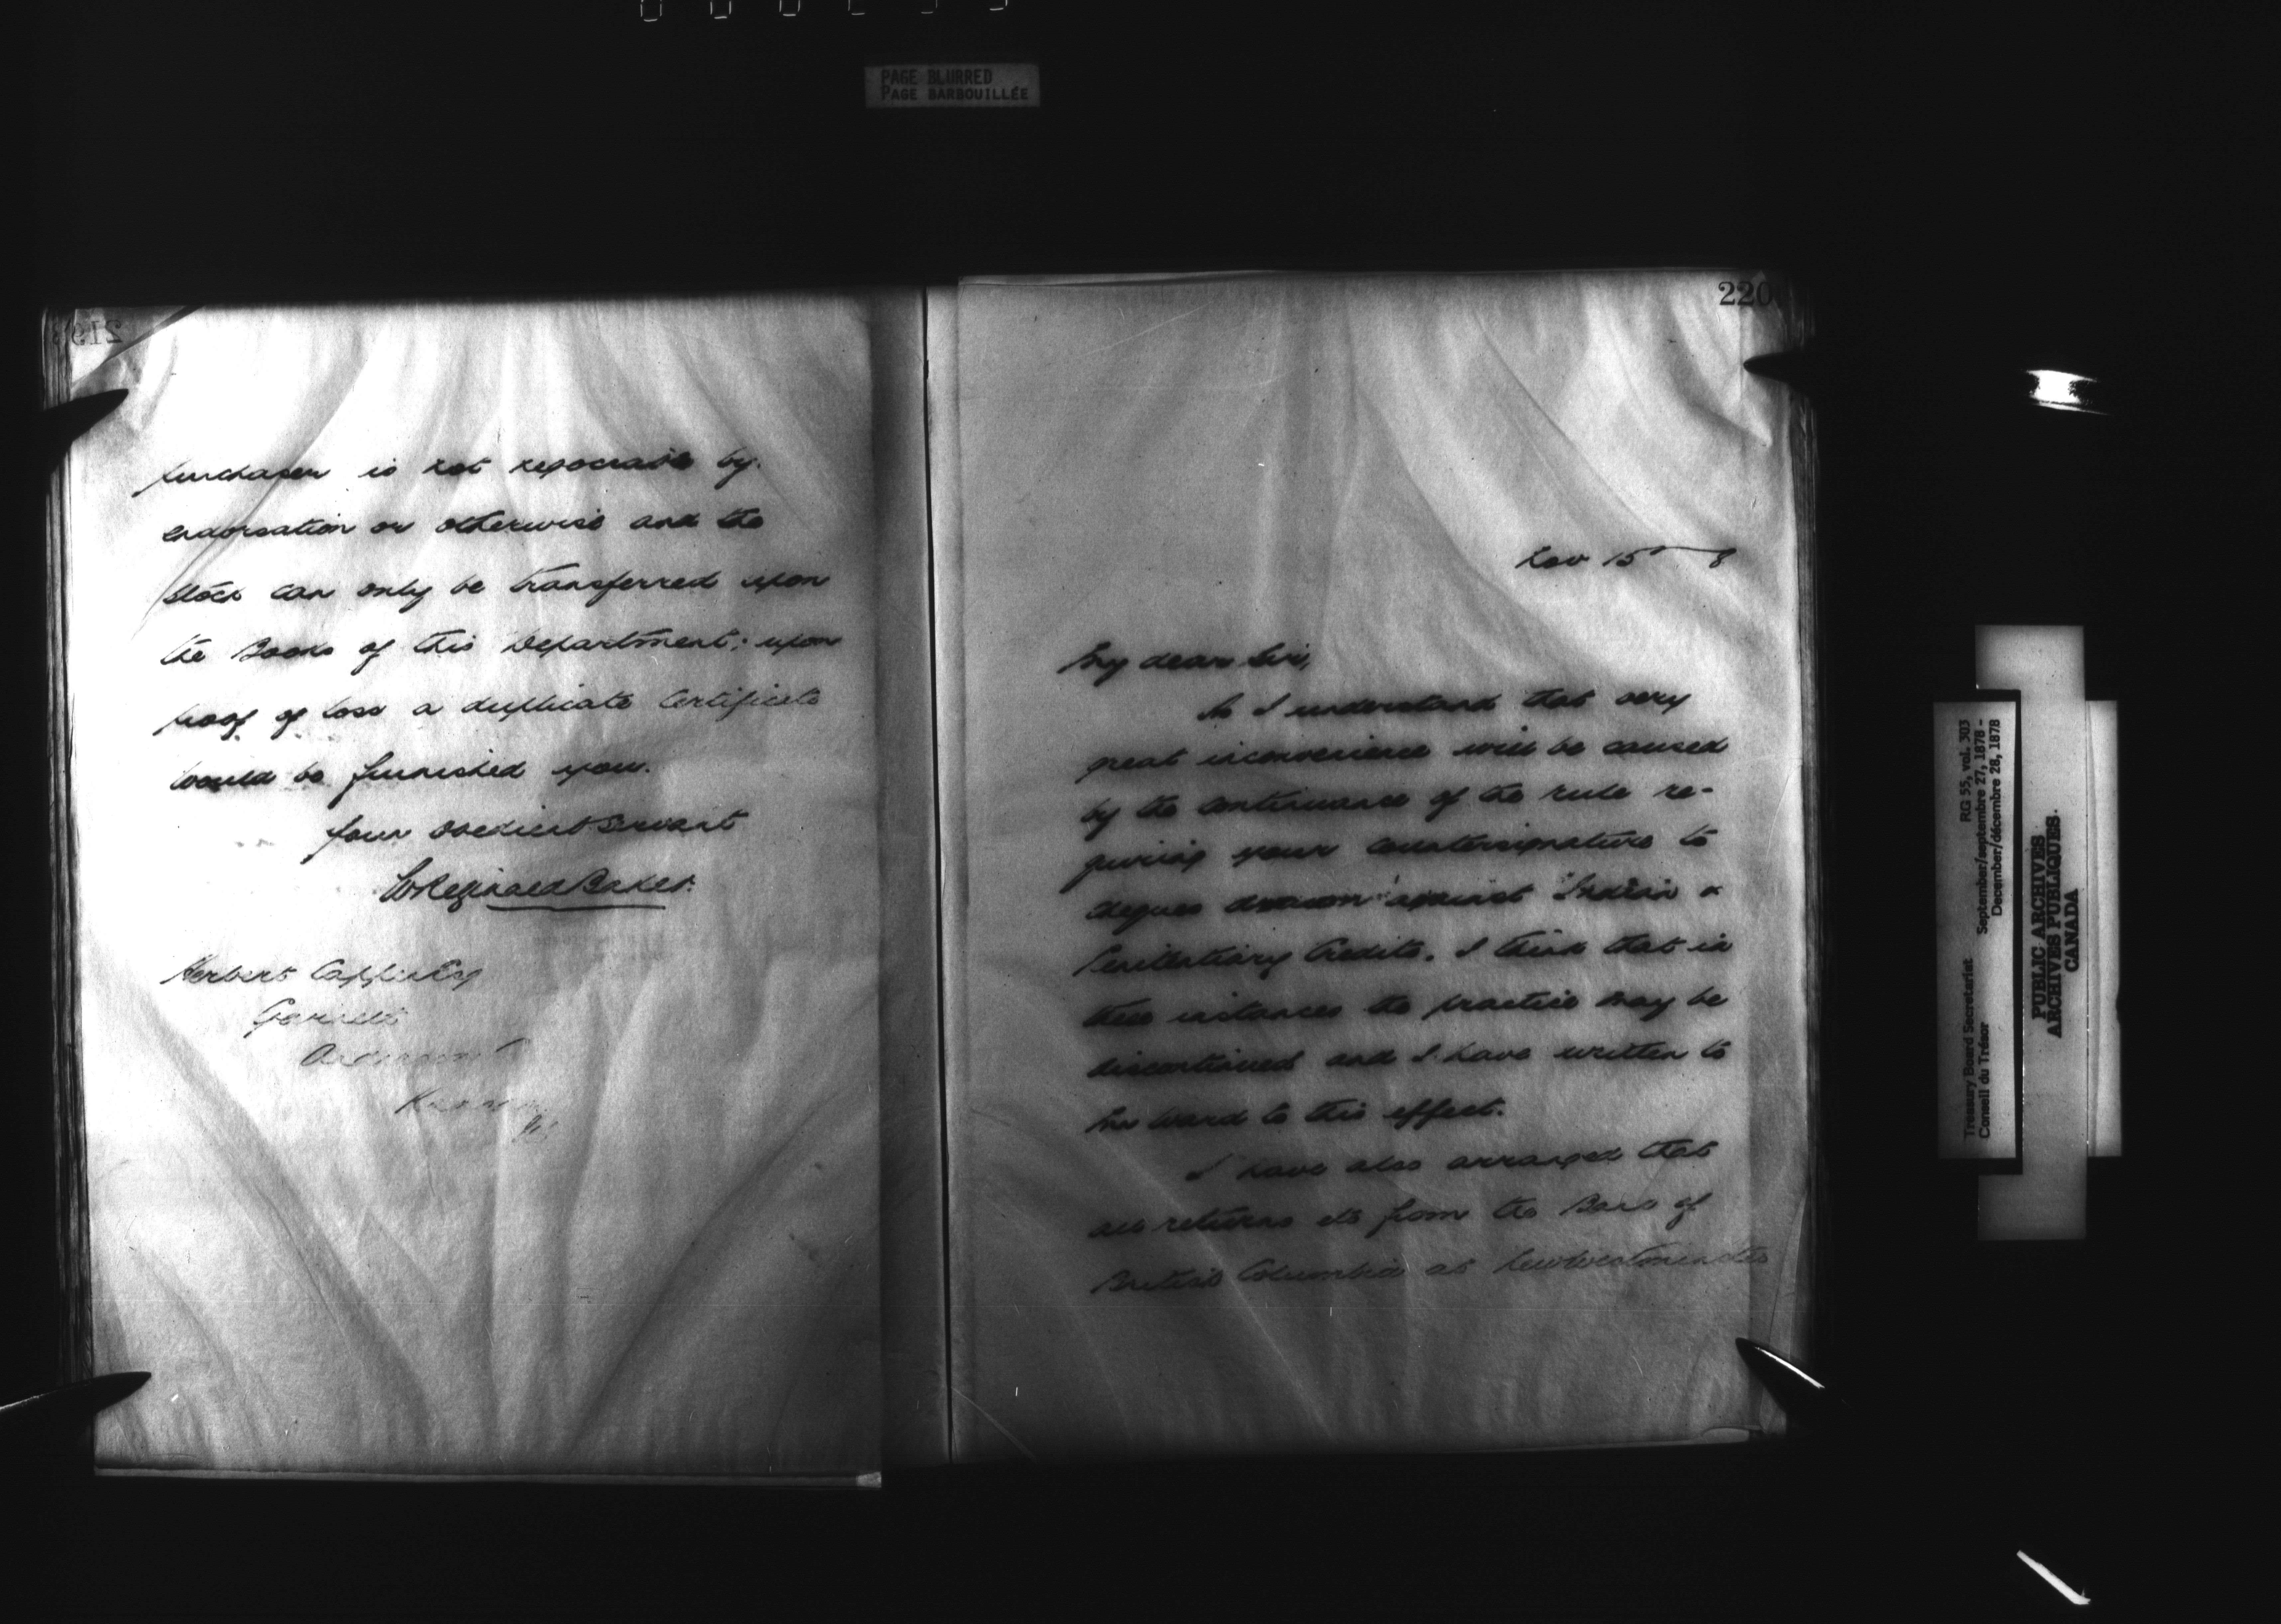 PAGE BLURRED
PAGE BARBOUILLÉE
219
purchaser is not negociable by
endorsation or otherwise and the
stock can only be transferred upon
the Books of this Department; upon
proof of loss a duplicate Certificate
would be furnished you.
Your Obedient Servant
W Reginald Baker.
Herbert
220
Nov 15 8
My dear Sir,
As I understand that very
great inconvenience will be caused
by the continuance of the rule re-
quiring your countersignature to
cheques drawn against Indian &
Penitentiary Credits. I think that in
these instances the practice may be
discontinued and I have written to
Mr Ward to this effect.
I have also arranged that
all returns etc from the Bank of
British Columbia at New Westminster
Treasury Board Secretariat RG 55, vol. 303
Conseil du Trésor September/septembre 27, 1878 -
December/décembre 28, 1878
PUBLIC ARCHIVES
ARCHIVES PUBLIQUES.
CANADA